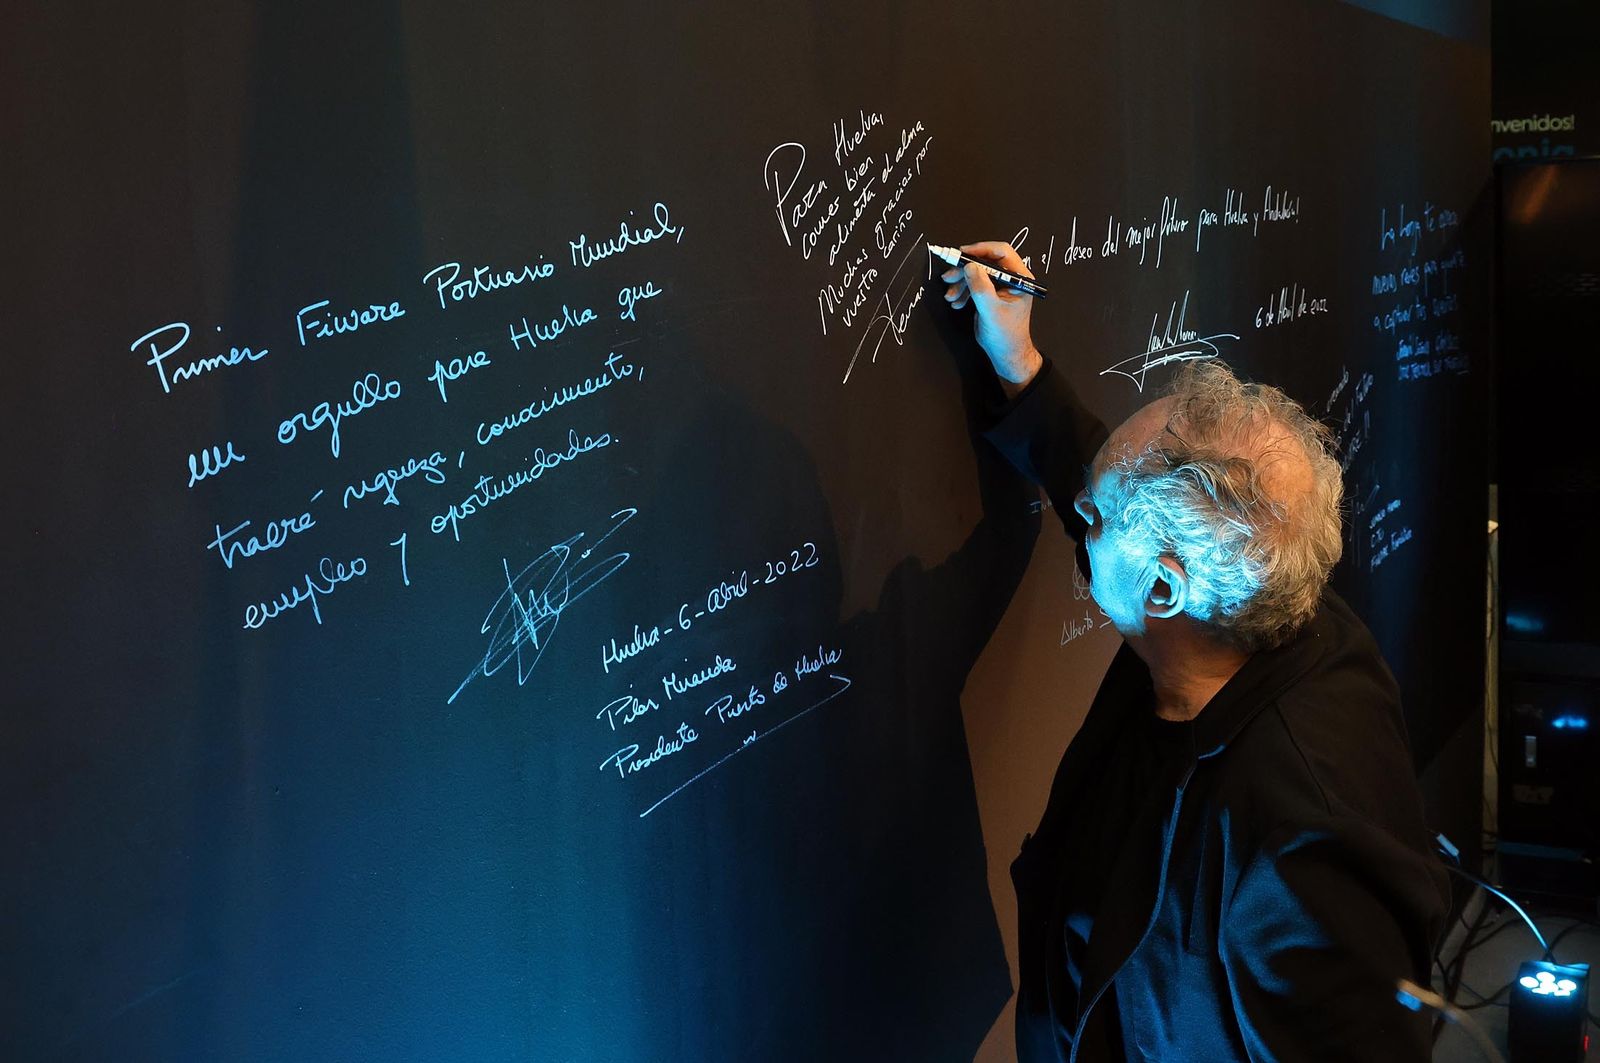 Primer Fiware Portuario Mundial,
un orgullo para Huelva que
traeré riqueza, conocimiento,
empleo y oportunidades.
Huelva-6-abril-2022
Pilar Miranda
Presidente Puerto de Huelva
Para Huelva,
comer bien
alimenta el alma
Muchas gracias por
vuestro cariño
Ferran
el deseo del mejor futuro para Huelva y Andalucía!
6 de Abril de 2022
La Lonja te
nuevas redes para
a capturar tus sueños
Alberto
CTO
Fiware Foundation
nvenidos!